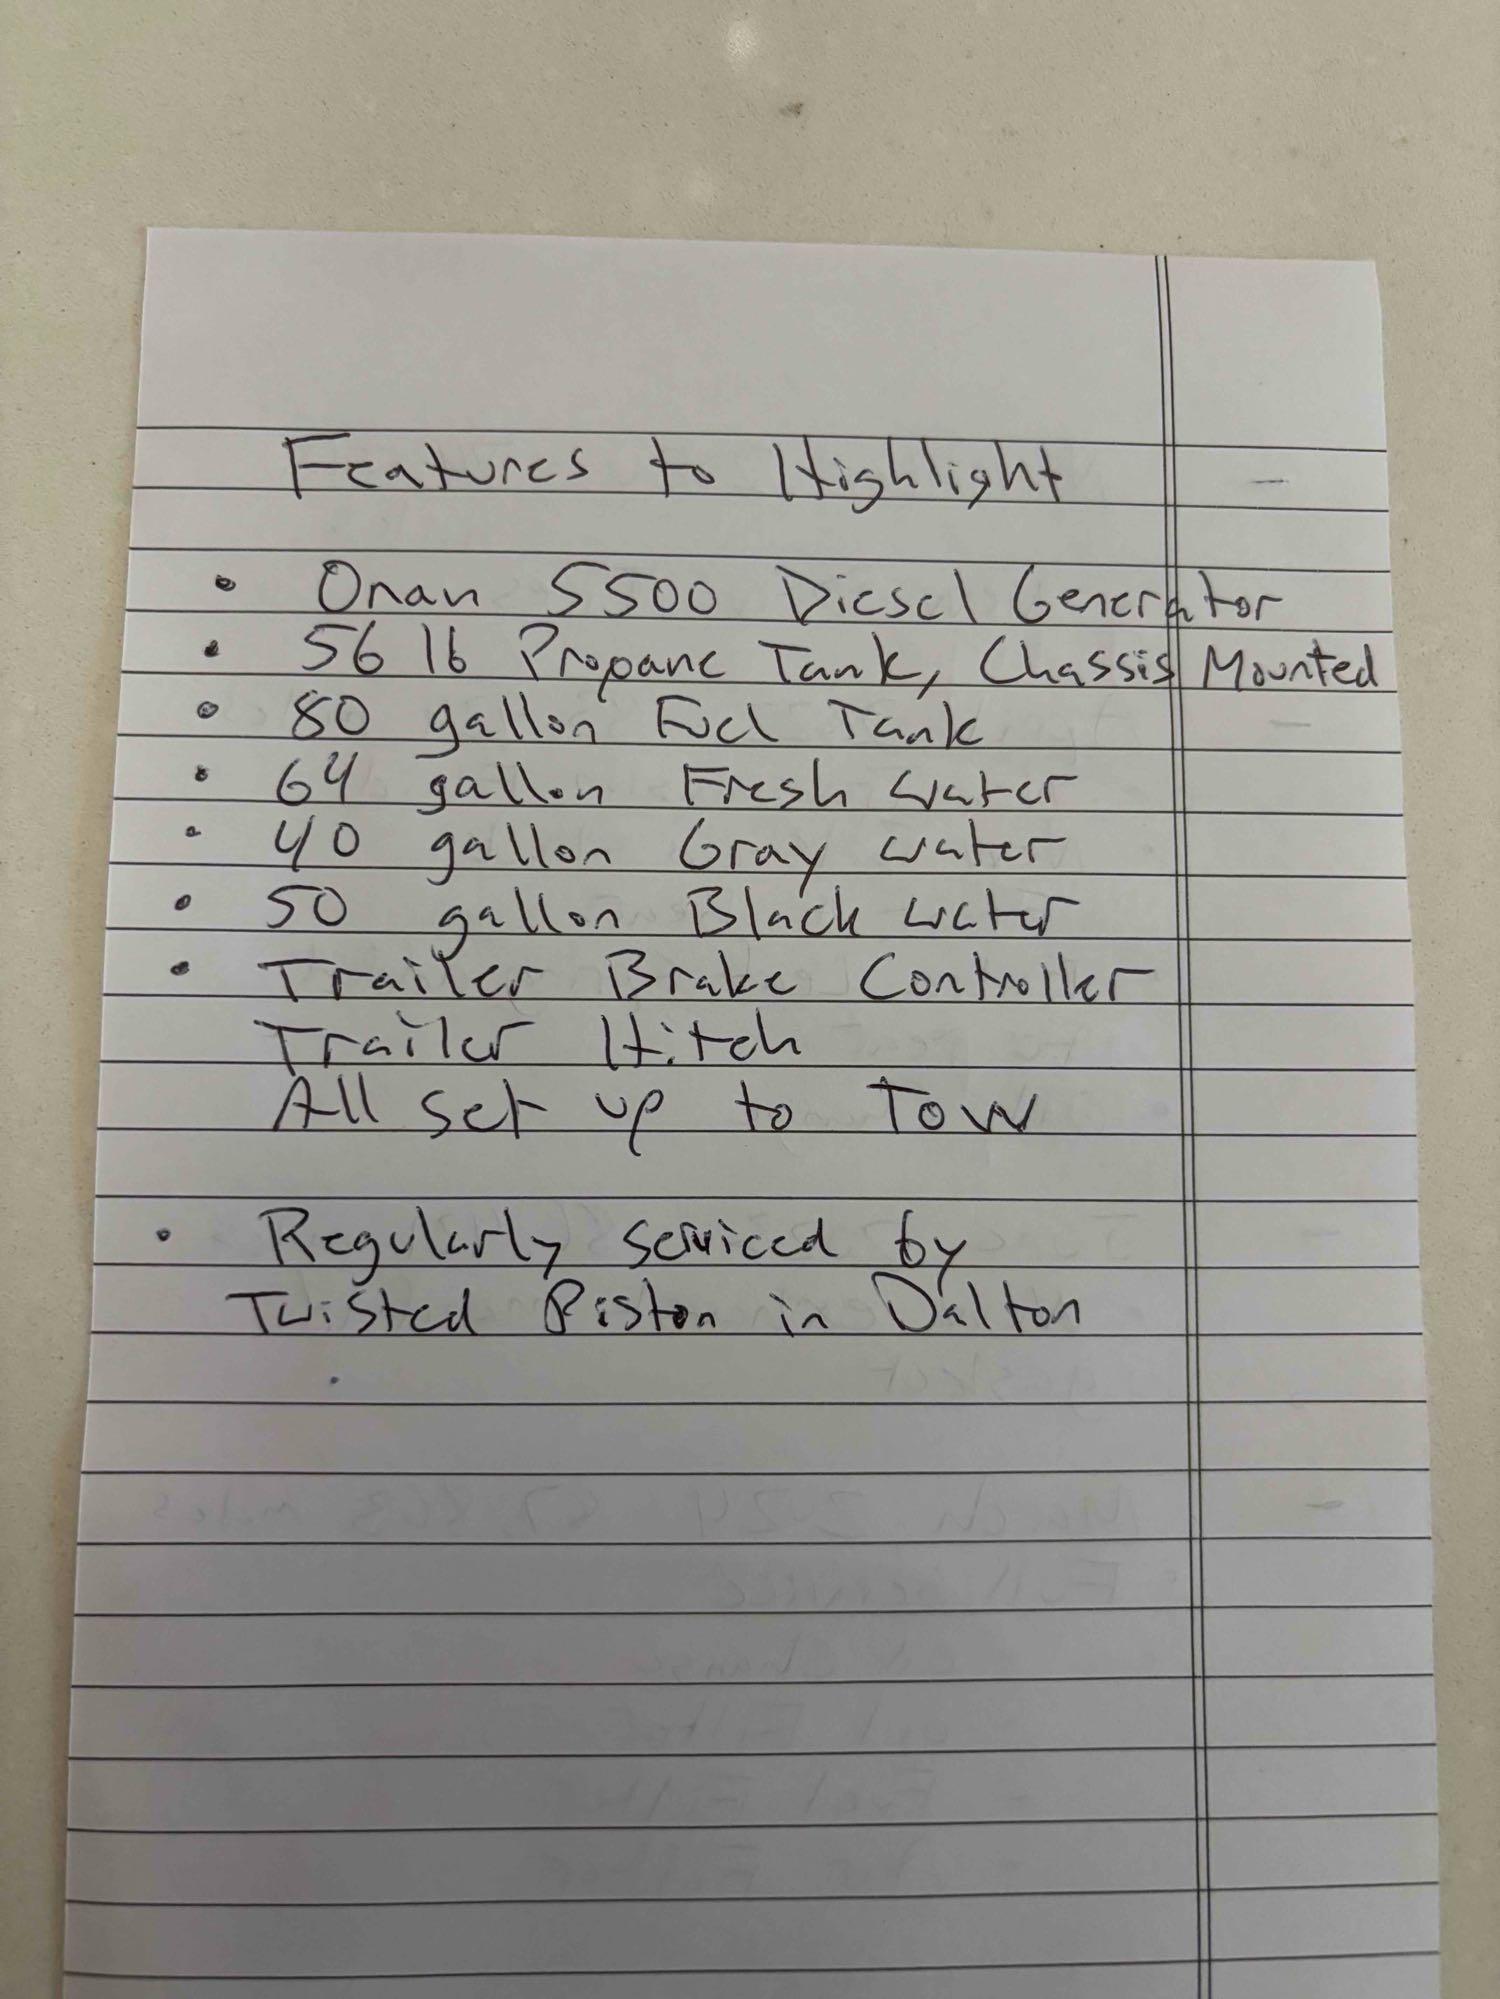 Features to Highlight
• Onan 5500 Diesel Generator
• 56 lb Propane Tank, Chassis Mounted
• 80 gallon Fuel Tank
• 64 gallon Fresh water
• 40 gallon Gray water
• 50 gallon Black water
• Trailer Brake Controller
Trailer Hitch
All set up to Tow
• Regularly serviced by
Twisted Piston in Dalton